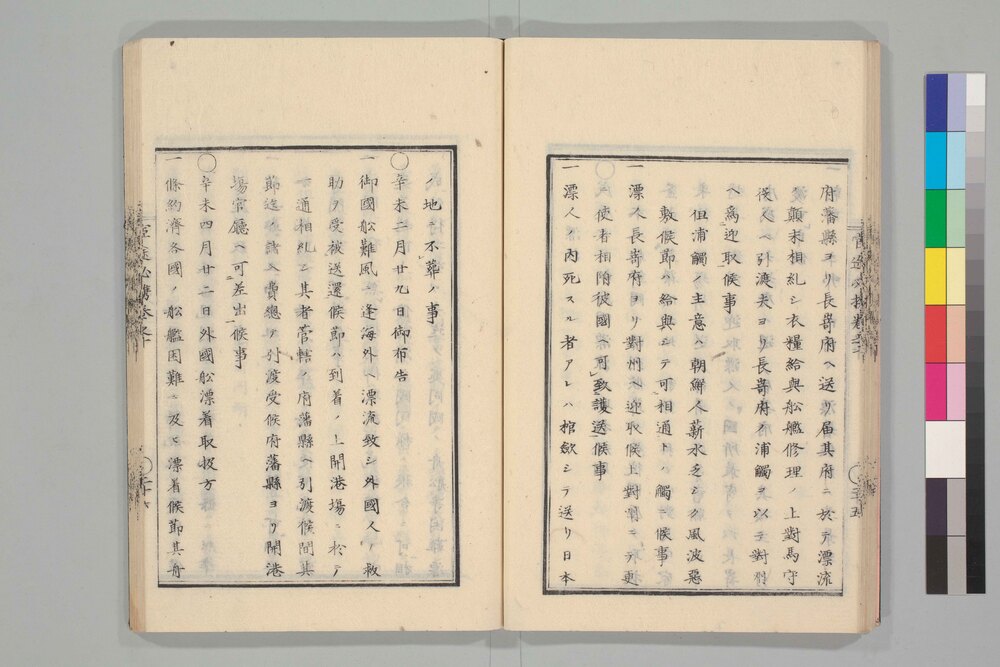 府藩縣ヨリ長嵜府ヘ送リ届其府ニ於テ漂流
ノ顛末相糺シ衣糧給與舩艦修理ノ上對馬守
役人ヘ引渡夫ヨリ長嵜府ノ浦觸ヲ以テ對州
ヘ為迎取候事
但浦觸ノ主意ハ朝鮮人薪水乏シク風波惡
敷候節ハ給與シテ可相通トノ觸ニ候事
一漂人ノ長嵜府ヨリ對州ニ迎取候上對州ニテ更
ニ使者相附彼國ヘ可致護送候事
一漂人ノ内死スル者アレハ棺歛シテ送リ日本
ノ地ニ不葬ノ事
○辛未二月廿九日御布告
一御國舩難風ニ逢海外ヘ漂流致シ外國人ノ救
助ヲ受被送還候節ハ到着ノ上開港塲ニ於テ
一ト通相糺シ其者管轄ノ府藩縣ヘ引渡候間其
節迄ノ諸入費總テ引渡受候府藩縣ヨリ開港
塲官廳ヘ可差出候事
○辛未四月廿二日外國舩漂着取扱方
一條約濟各國ノ舩艦困難ニ及ヒ漂着候節其舟